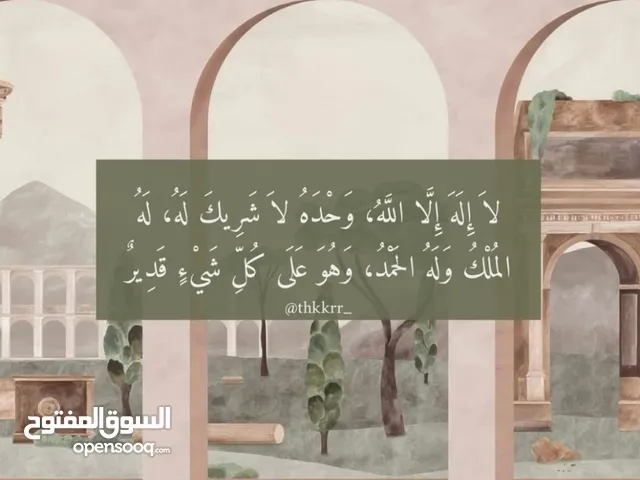 لاَ إِلَهَ إِلَّا اللَّهُ، وَحْدَهُ لاَ شَرِيكَ لَهُ، لَهُ
المُلْكُ وَلَهُ الحَمْدُ، وَهُوَ عَلَى كُلِّ شَيْءٍ قَدِيرٌ
@thkkrr_
السوق المفتوح
opensooq.com